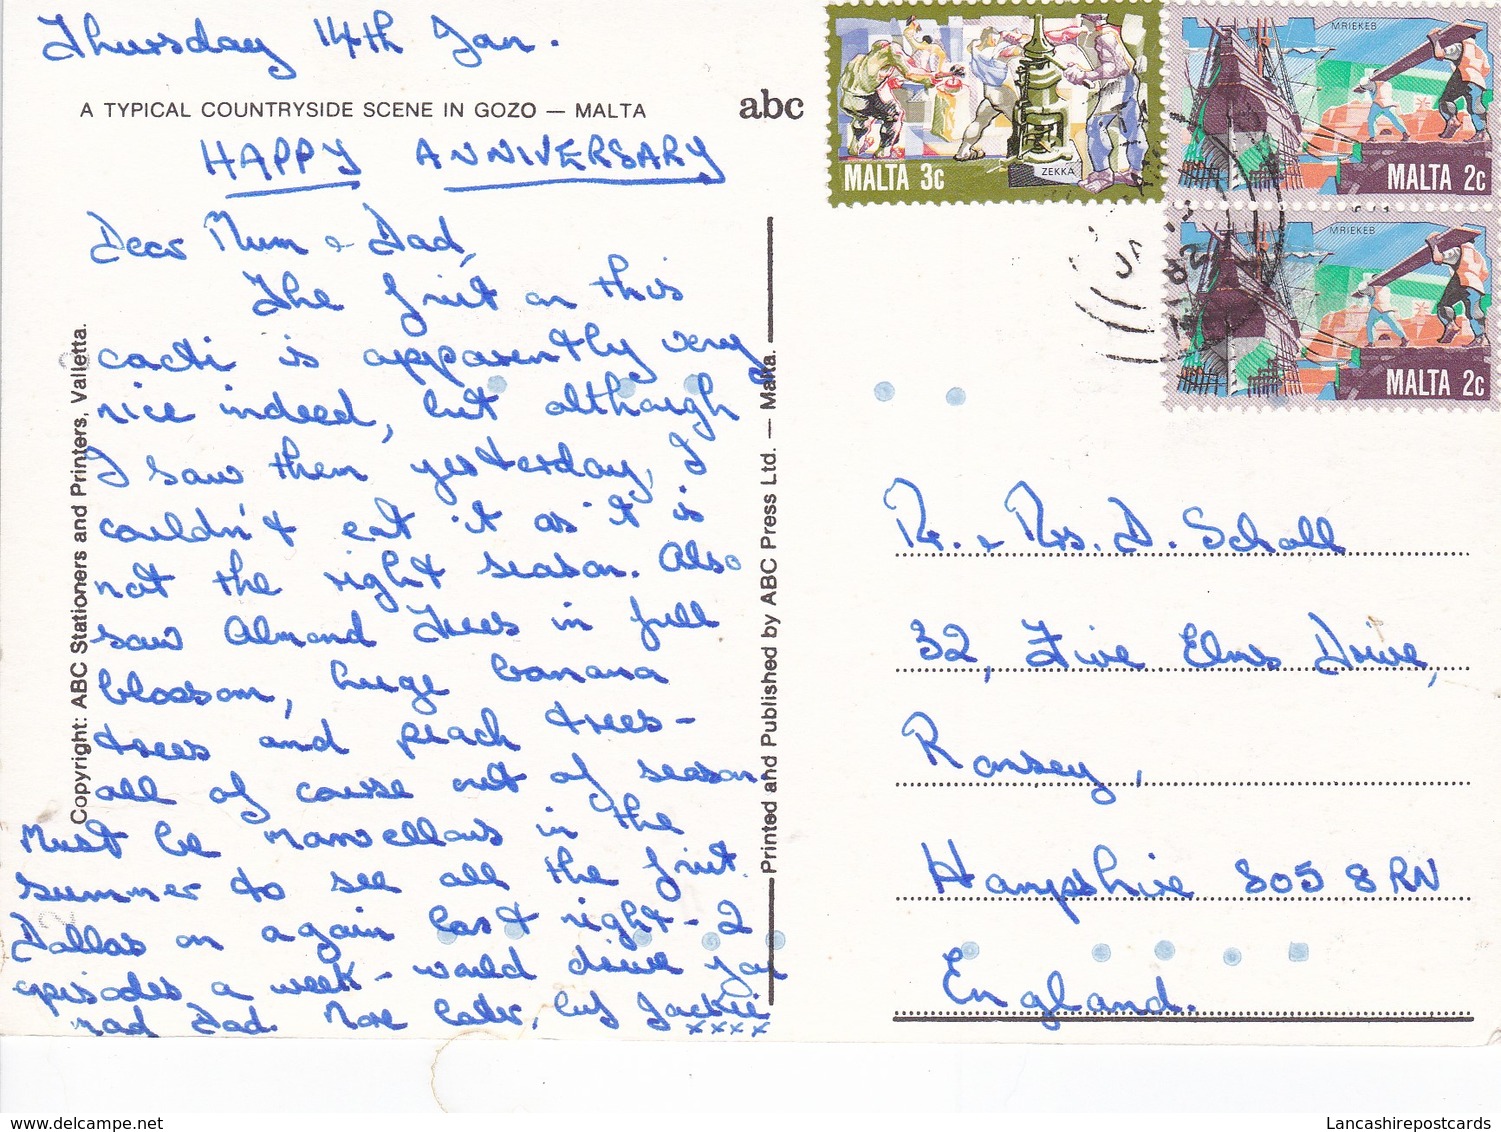 Thursday 14th Jan.
A TYPICAL COUNTRYSIDE SCENE IN GOZO — MALTA
abc
HAPPY ANNIVERSARY
Dear Mum & Dad,
The fruit on this
cacti is apparently very
nice indeed, but although
I saw them yesterday, I
couldn't eat it as it is
not the right season. Also
saw Almond Trees in full
blossom, huge banana
trees and peach trees –
all of course out of season
Must be marvellous in the
summer to see all the fruit.
Dallas on again last night – 2
episodes a week – would drive you
mad Dad. More later, luv Jackie
xxxx
Copyright: ABC Stationers and Printers, Valletta.
Printed and Published by ABC Press Ltd. — Malta.
MALTA 3c
ZEKKA
MRIEKEB
MALTA 2c
MRIEKEB
MALTA 2c
Mr. & Mrs. D. Scholl
32, Five Elms Drive,
Romsey,
Hampshire SO5 8RN
England.
www.delcampe.net
Lancashirepostcards